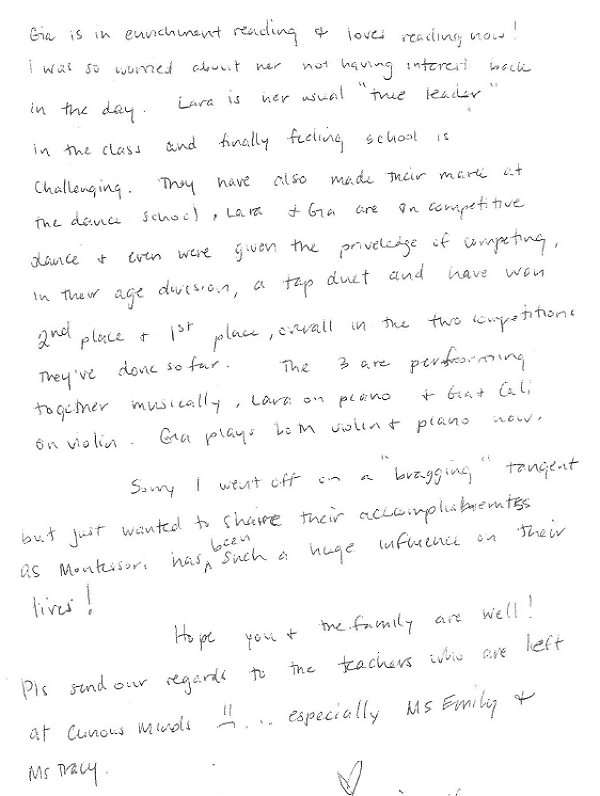 Gia is in enrichment reading & loves reading now!
I was so worried about her not having interest back
in the day. Lara is her usual "true leader"
in the class and finally feeling school is
Challenging. They have also made their mark at
the dance school, Lara & Gia are on competitive
dance & even were given the priveledge of competing,
in their age division, a tap duet and have won
2nd place & 1st place, overall in the two competitions
They've done so far. The 3 are performing
together musically, Lara on piano & Gia & Cali
on violin. Gia plays both violin & piano now.
Sorry I went off on a "bragging" tangent
but just wanted to share their accomplishments
as Montessori has been such a huge influence on their
lives!
Hope you & the family are well!
Pls send our regards to the teachers who are left
at Curious Minds !! ... especially Ms Emily &
Ms Tracy.